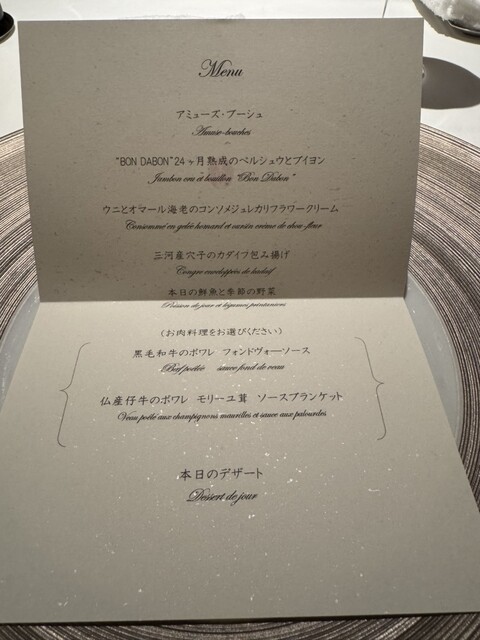 Menu
アミューズ・ブーシュ
Amuse-bouches
"BON DABON"24ヶ月熟成のペルシュウとブイヨン
Jambon cru et bouillon "Bon Dabon"
ウニとオマール海老のコンソメジュレカリフラワークリーム
Consommé en gelée homard et oursin crème de chou-fleur
三河産穴子のカダイフ包み揚げ
Congre enveloppés de kadaif
本日の鮮魚と季節の野菜
Poisson de jour et légumes printaniers
(お肉料理をお選びください)
黒毛和牛のポワレ フォンドヴォーソース
Bœf poêlée sauce fond de veau
仏産仔牛のポワレ モリーユ茸 ソースブランケット
Veau poêlé aux champignons maurilles et sauce aux palourdes
本日のデザート
Dessert de jour